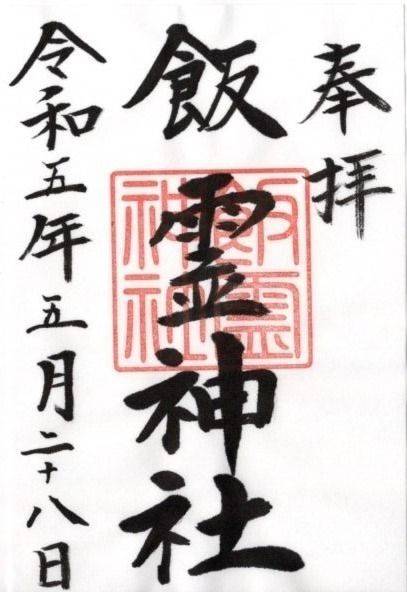 奉拝
飯霊神社
飯霊
神社
令和五年五月二十八日